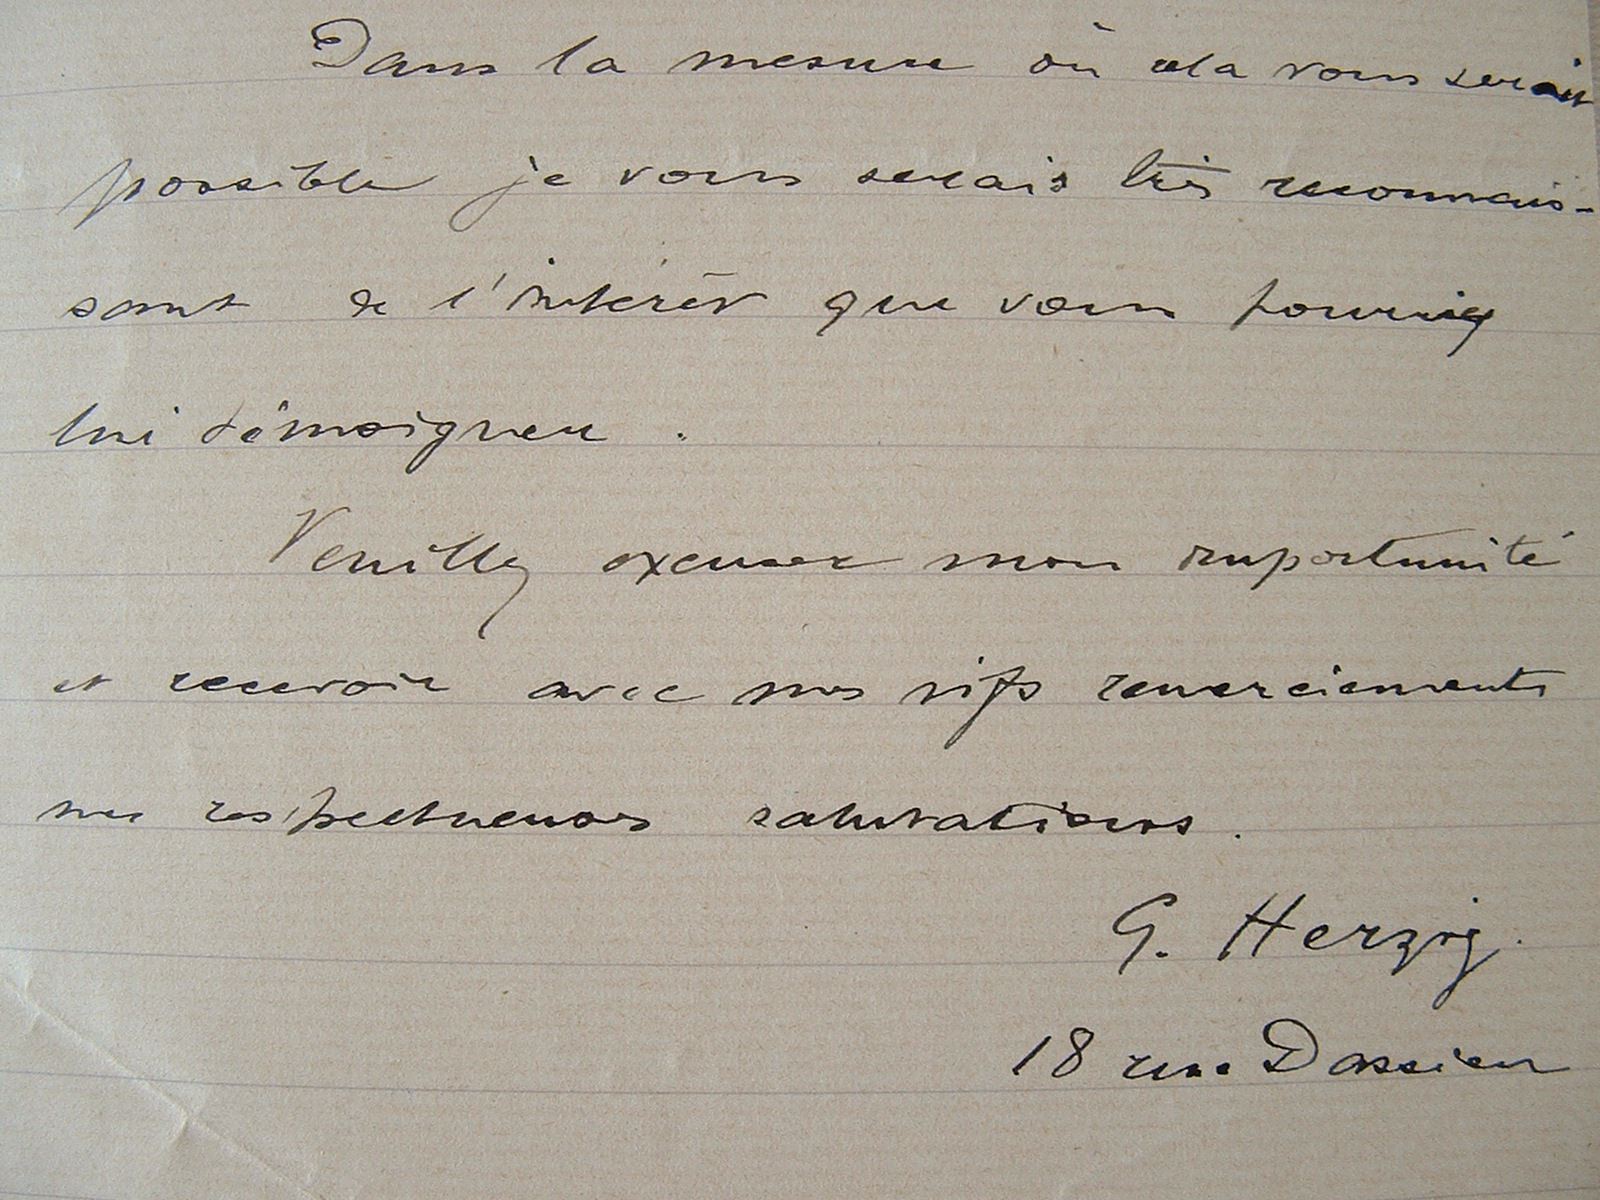 Dans la mesure où cela vous serait
possible je vous serais très reconnais-
sant de l'intérêt que vous pourriez
lui témoigner.
Veuillez excuser mon importunité
et recevoir avec mes vifs remerciements
mes respectueuses salutations.
G. Herzig.
18 rue Dassier